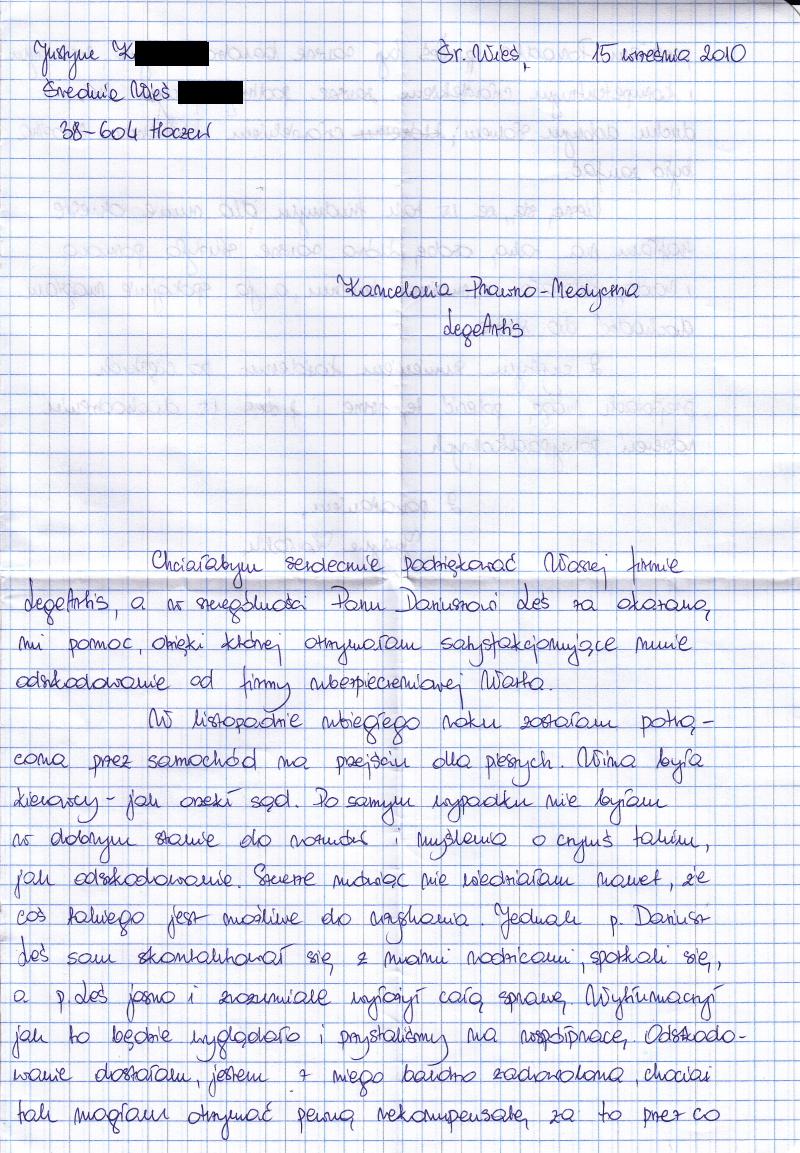 Justyna K
Śr. Wieś, 15 września 2010
Średnia Wieś
38-604 Hoczew
Kancelaria Prawno-Medyczna
LegeArtis
Chciałabym serdecznie podziękować Waszej firmie
LegeArtis, a w szczególności Panu Dariuszowi Leś za okazaną
mi pomoc, dzięki której otrzymałam satysfakcjonujące mnie
odszkodowanie od firmy ubezpieczeniowej Warta.
W listopadzie ubiegłego roku zostałam potrą-
cona przez samochód na przejściu dla pieszych. Wina była
kierowcy - jak orzekł sąd. Po samym wypadku nie byłam
w dobrym stanie do rozmów i myślenia o czymś takim,
jak odszkodowanie. Szczerze mówiąc nie wiedziałam nawet, że
coś takiego jest możliwe do uzyskania. Jednak p. Dariusz
Leś sam skontaktował się z moimi rodzicami, spotkali się,
a p. Leś jasno i zrozumiale wyłożył całą sprawę. Wytłumaczył
jak to będzie wyglądało i przystaliśmy na współpracę. Odszkodo-
wanie dostałam, jestem z niego bardzo zadowolona, chociaż
tak mogłam otrzymać pewną rekompensatę za to przez co